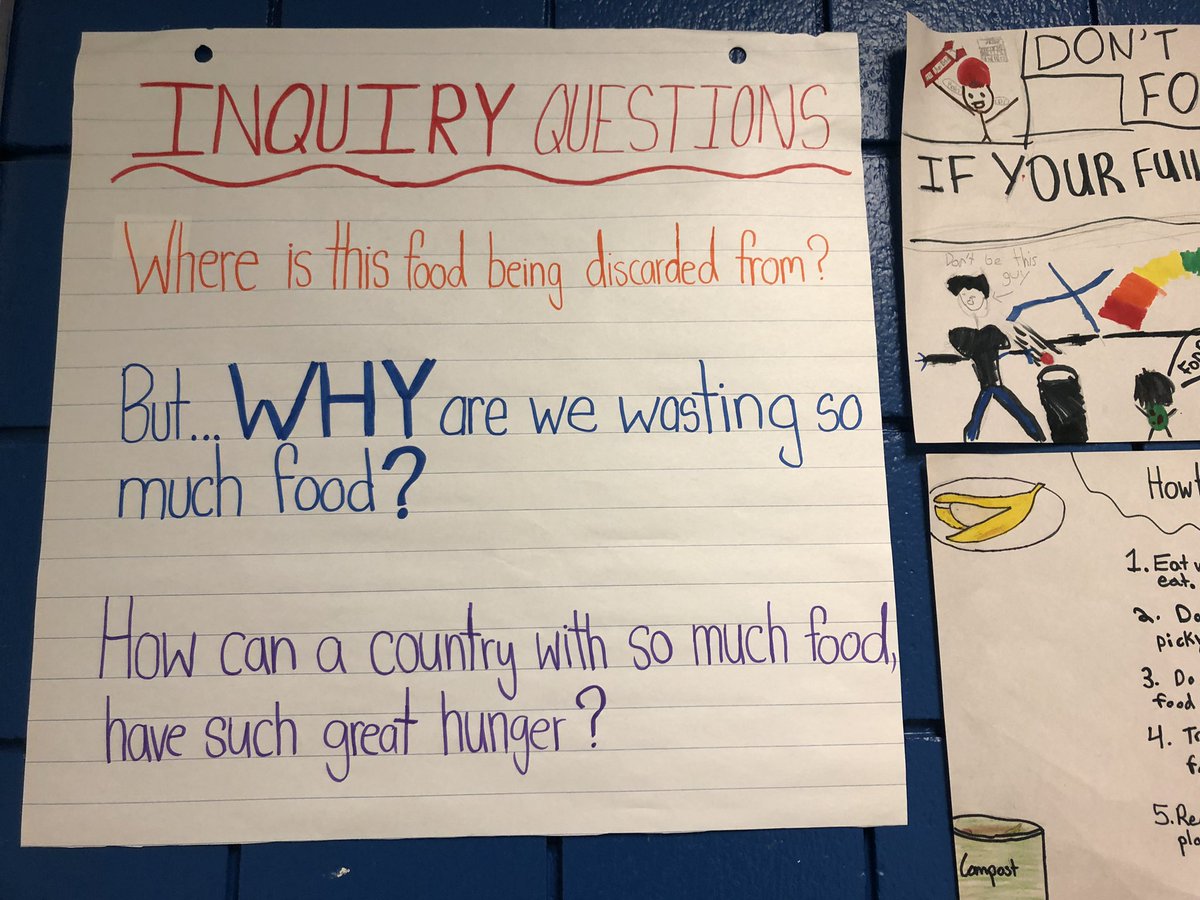 INQUIRY QUESTIONS
Where is this food being discarded from?
But... WHY are we wasting so
much food?
How can a country with so much food,
have such great hunger?
DON'T
FO
IF YOUR FUll
Don't be this
guy
How
1. Eat
eat.
2. Do
picky
3. Do
food
4.
5. Re
pla
Compost